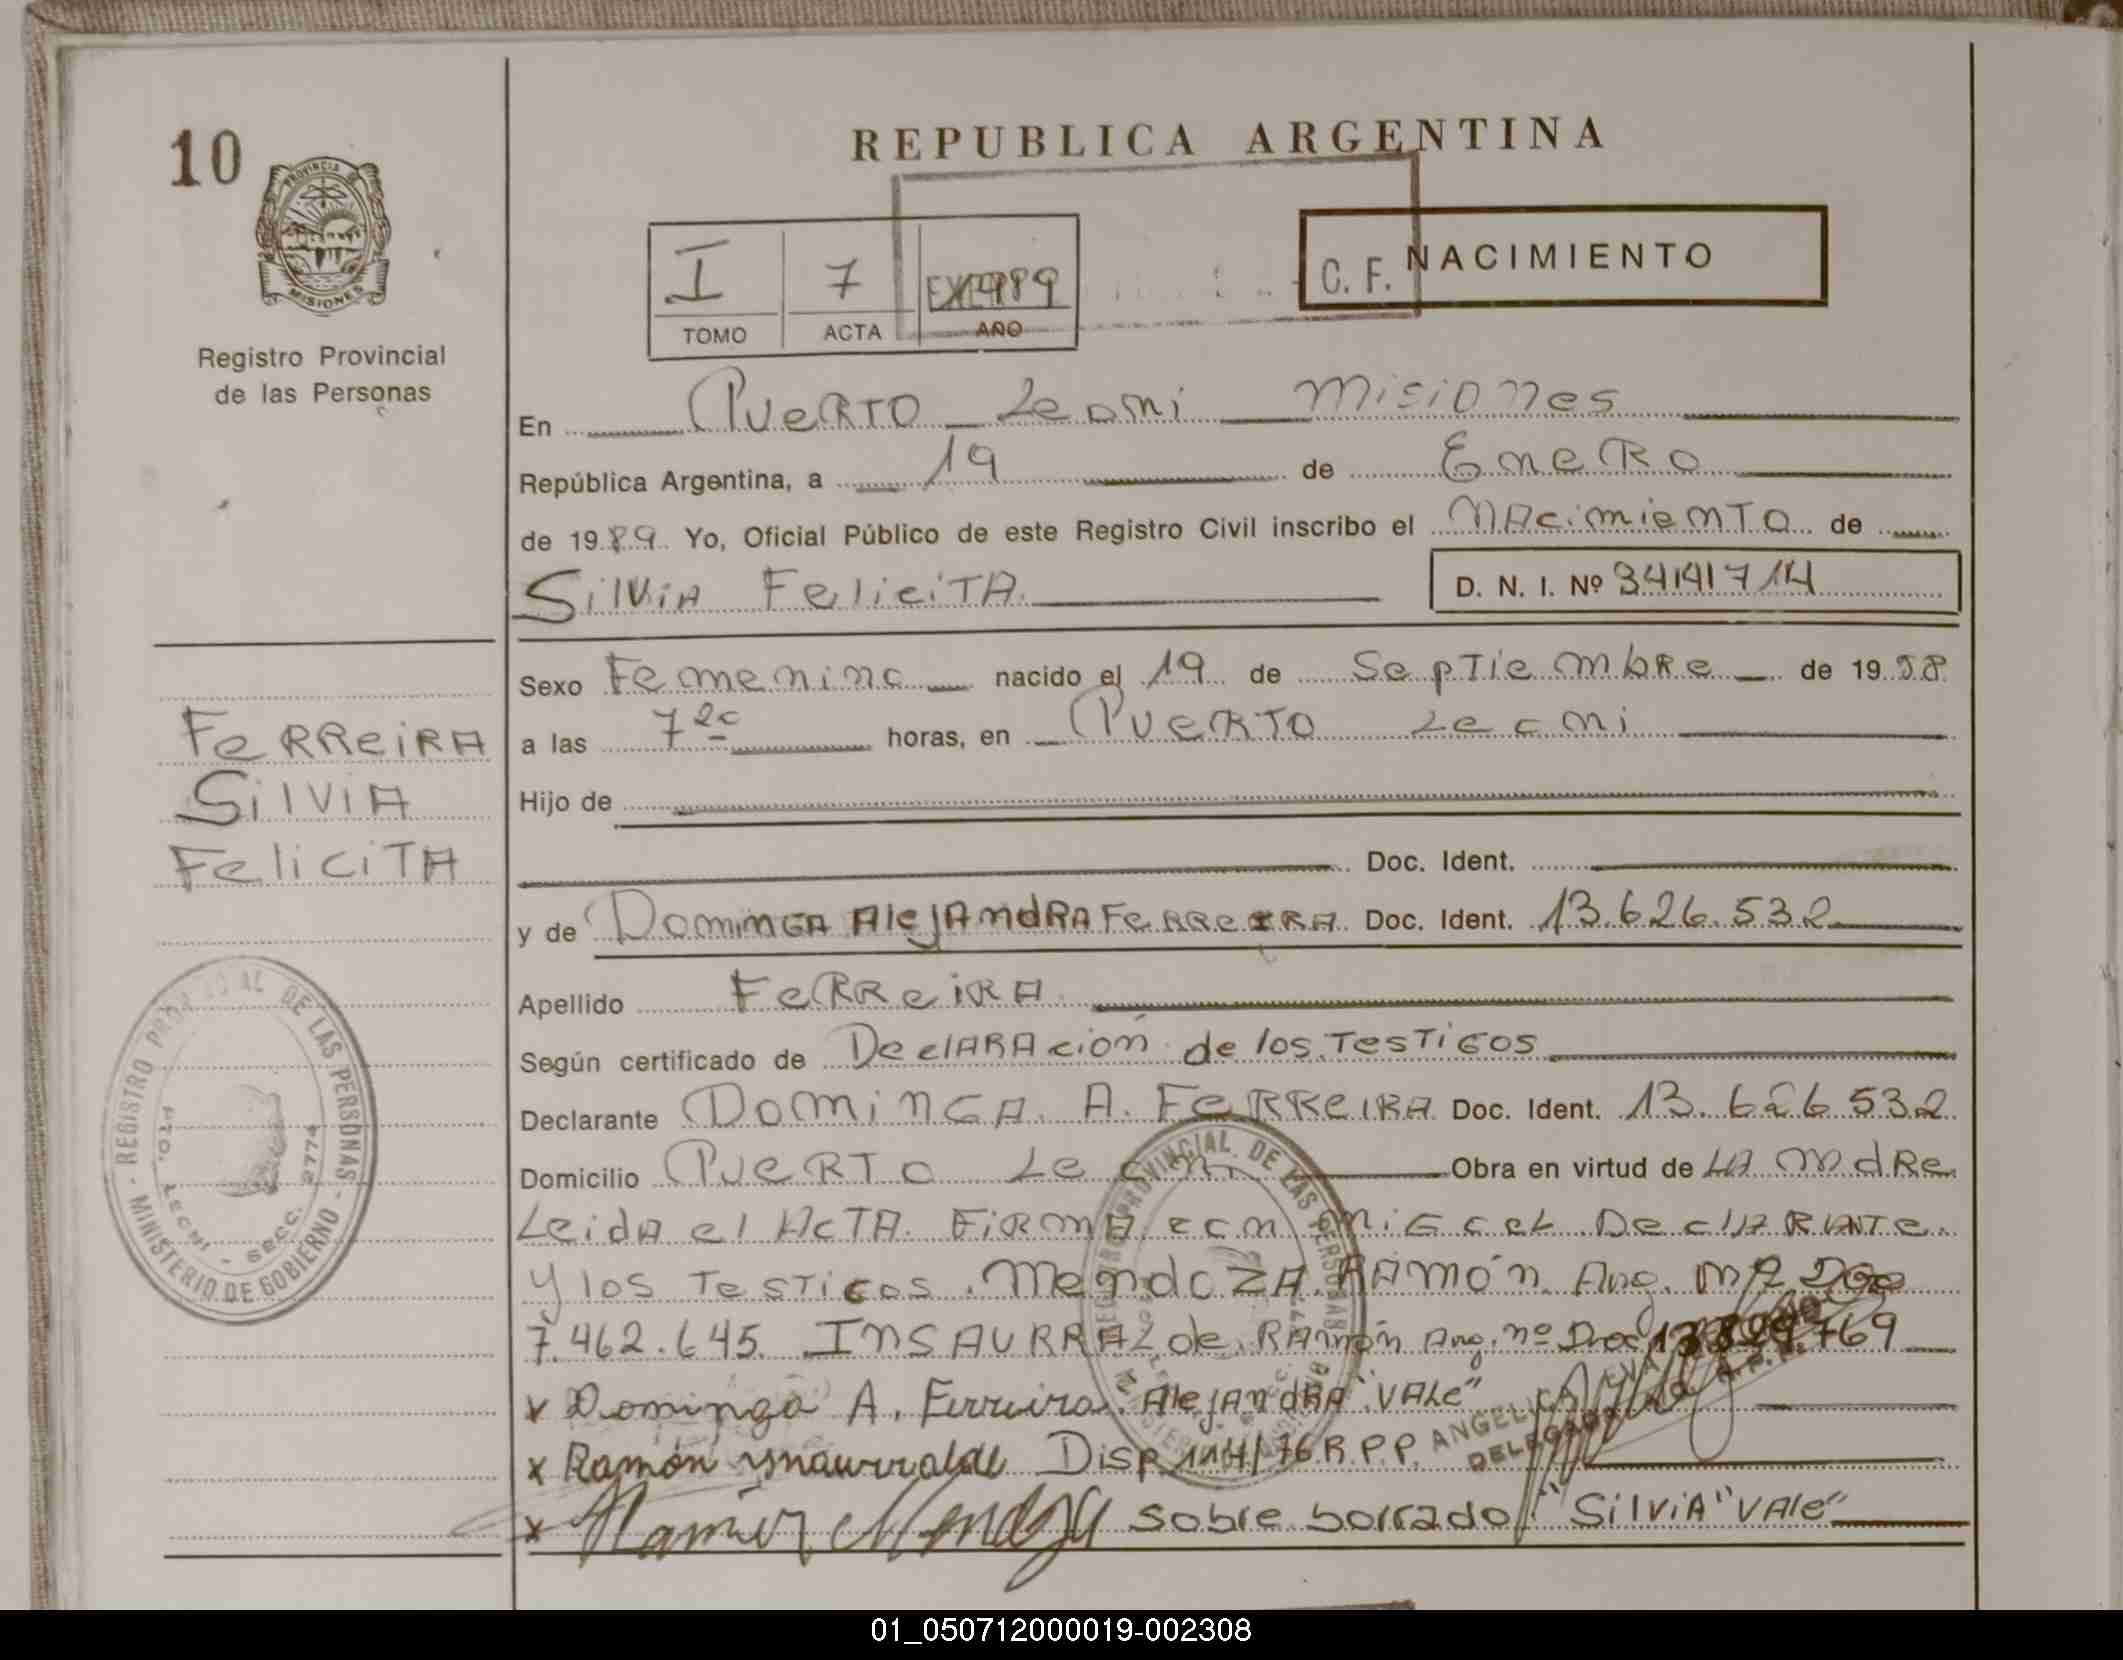 10
PROVINCIA DE
MISIONES
Registro Provincial
de las Personas
REPUBLICA ARGENTINA
I 7 1989
TOMO ACTA AÑO
C. F. NACIMIENTO
En PUERTO Leoni Misiones
República Argentina, a 19 de Enero
de 1989 Yo, Oficial Público de este Registro Civil inscribo el NACimieNTO de
SilViA FeliciTA D. N. I. Nº 34141714
Sexo Femenino nacido el 19 de SepTiembRe de 1988
a las 7 horas, en PUERTO Leoni
Hijo de
Doc. Ident.
y de DominGA AlejAndRA FeRReiRA Doc. Ident. 13.626.532
Apellido FeRReiRA
Según certificado de DeclARAción de los TesTiGos
Declarante DominGA A. FeRReiRA Doc. Ident. 13.626532
Domicilio PUERTO Leoni Obra en virtud de LA MAdRe
LeidA el ActA FiRMA con DeclARANTe
y los TesTiGos MendoZA RAmón Arg.
7.462.645 INSAURRALde RAmón Arg. nº Doc 769
x Dominga A. Ferreira AlejAndRA "VALe"
x Ramón ynsaurralde Disp 114/76 R.P.P.
x Ramón Mendoza sobre borrado "SilviA" VAle"
ANGELICA EVA
DELEGADA
FeRReiRA
SilViA
FeliciTA
REGISTRO PROVINCIAL DE LAS PERSONAS - MINISTERIO DE GOBIERNO -
PTO. LEONI - SECC. 2774
01_050712000019-002308